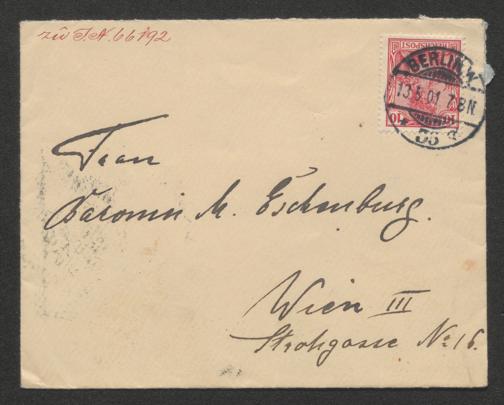 zu I.N. 66192
REICHSPOST
10 10
BERLIN.W.
13.5.01 7-8N
* 35 a
Frau
Baronin M. Eschenburg.
Wien III
Strohgasse No 16.